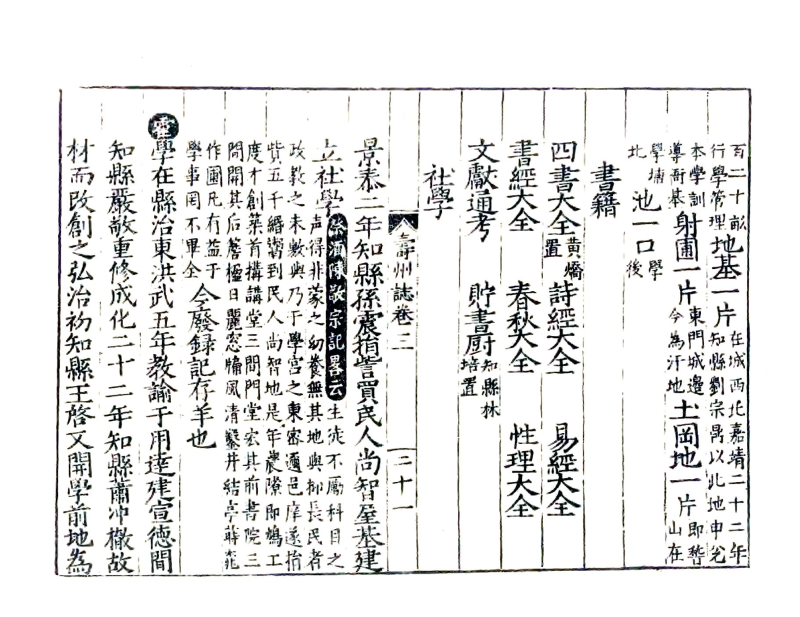 百二十畝
行學管理地基一片在城西北嘉靖二十二年
知縣劉宗禺以此地申允
本學訓
導衙基射圃一片東門城邊
今為汙地土岡地一片即
山在
學墻
北池一口學
後
書籍
四書大全黃
置詩經大全易經大全
書經大全春秋大全性理大全
文獻通考貯書厨知縣林
培置
社學
壽州誌卷二
二十一
景泰二年知縣孫震捐貲買民人尚智屋基建
立社學祭酒陳敬宗記畧云生徒不屬科目之
聲得非蒙之幼養無其地與抑長民者
政教之未敷與乃于學宫之東密邇邑庠遂捐
貲五千緡鬻到民人尚智地是年農隙即鳩工
度才創築首搆講堂三間門堂宏其前書院三
間開其后簷楹日麗窓牖風清鑿井結亭蒔花
作圃凡有益于
學事罔不畢全今廢録記存羊也
霍學在縣治東洪武五年教諭于用達建宣德間
知縣嚴敬重修成化二十二年知縣蕭冲檄故
材而改創之弘治初知縣王啓又開學前地為